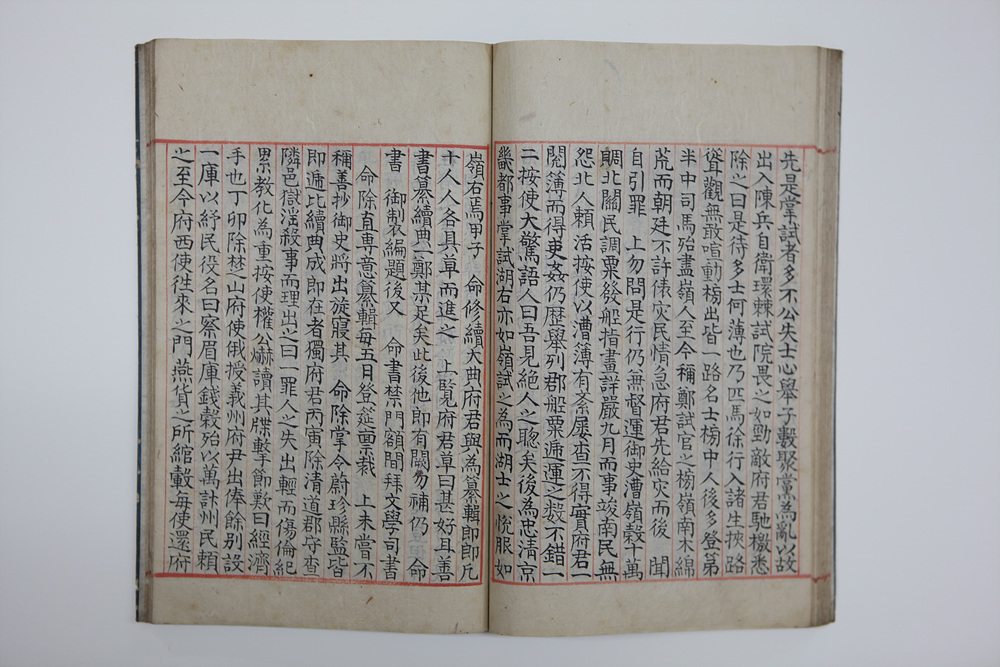 先是掌試者多不公失士心舉子數聚黨為亂以故
出入陳兵自衛環棘試院畏之如勁敵府君馳檄悉
除之曰是待多士何薄也乃匹馬徐行入諸生挾路
聳觀無敢喧動榜出皆一路名士榜中人後多登第
半中司馬殆盡嶺人至今稱鄭試官之榜嶺南木綿
荒而朝廷不許俵灾民情急府君先給灾而後 聞
自引罪 上勿問是行仍無督運御史漕嶺穀十萬
賙北關民調粟發船指畫詳嚴九月而事竣南民無
怨北人賴活按使以漕簿有紊屢查不得實府君一
閱簿而得吏姦仍歷舉列郡船粟遞運之數不錯一
二按使大驚語人曰吾見絕人之聦矣後為忠淸京
畿都事掌試湖右亦如嶺試之為而湖士之悅服如
嶺右焉甲子 命修續大典府君與為纂輯郎郎凡
十人人各具草而進之 上覧府君草曰甚好耳善
書纂續典一鄭某足矣此後他郎有闕勿補仍 命
書 御製編題後又 命書禁門額閒拜文學司書
命除直專意纂輯每五日登筵稟裁 上未嘗不
稱善抄御史將出旋寢其 命除掌令蔚珍縣監皆
即遞比續典成郎在者獨府君丙寅除清道郡守查
隣邑獄淫殺事而理出之曰一罪人之失出輕而傷倫紀
累教化為重按使權公爀讀其牒擊節歎曰經濟
手也丁卯除楚山府使俄授義州府尹出俸餘別設
一庫以紓民役名曰察眉庫錢穀殆以萬計州民賴
之至今府西使徃來之門燕貨之所綰轂每使還府